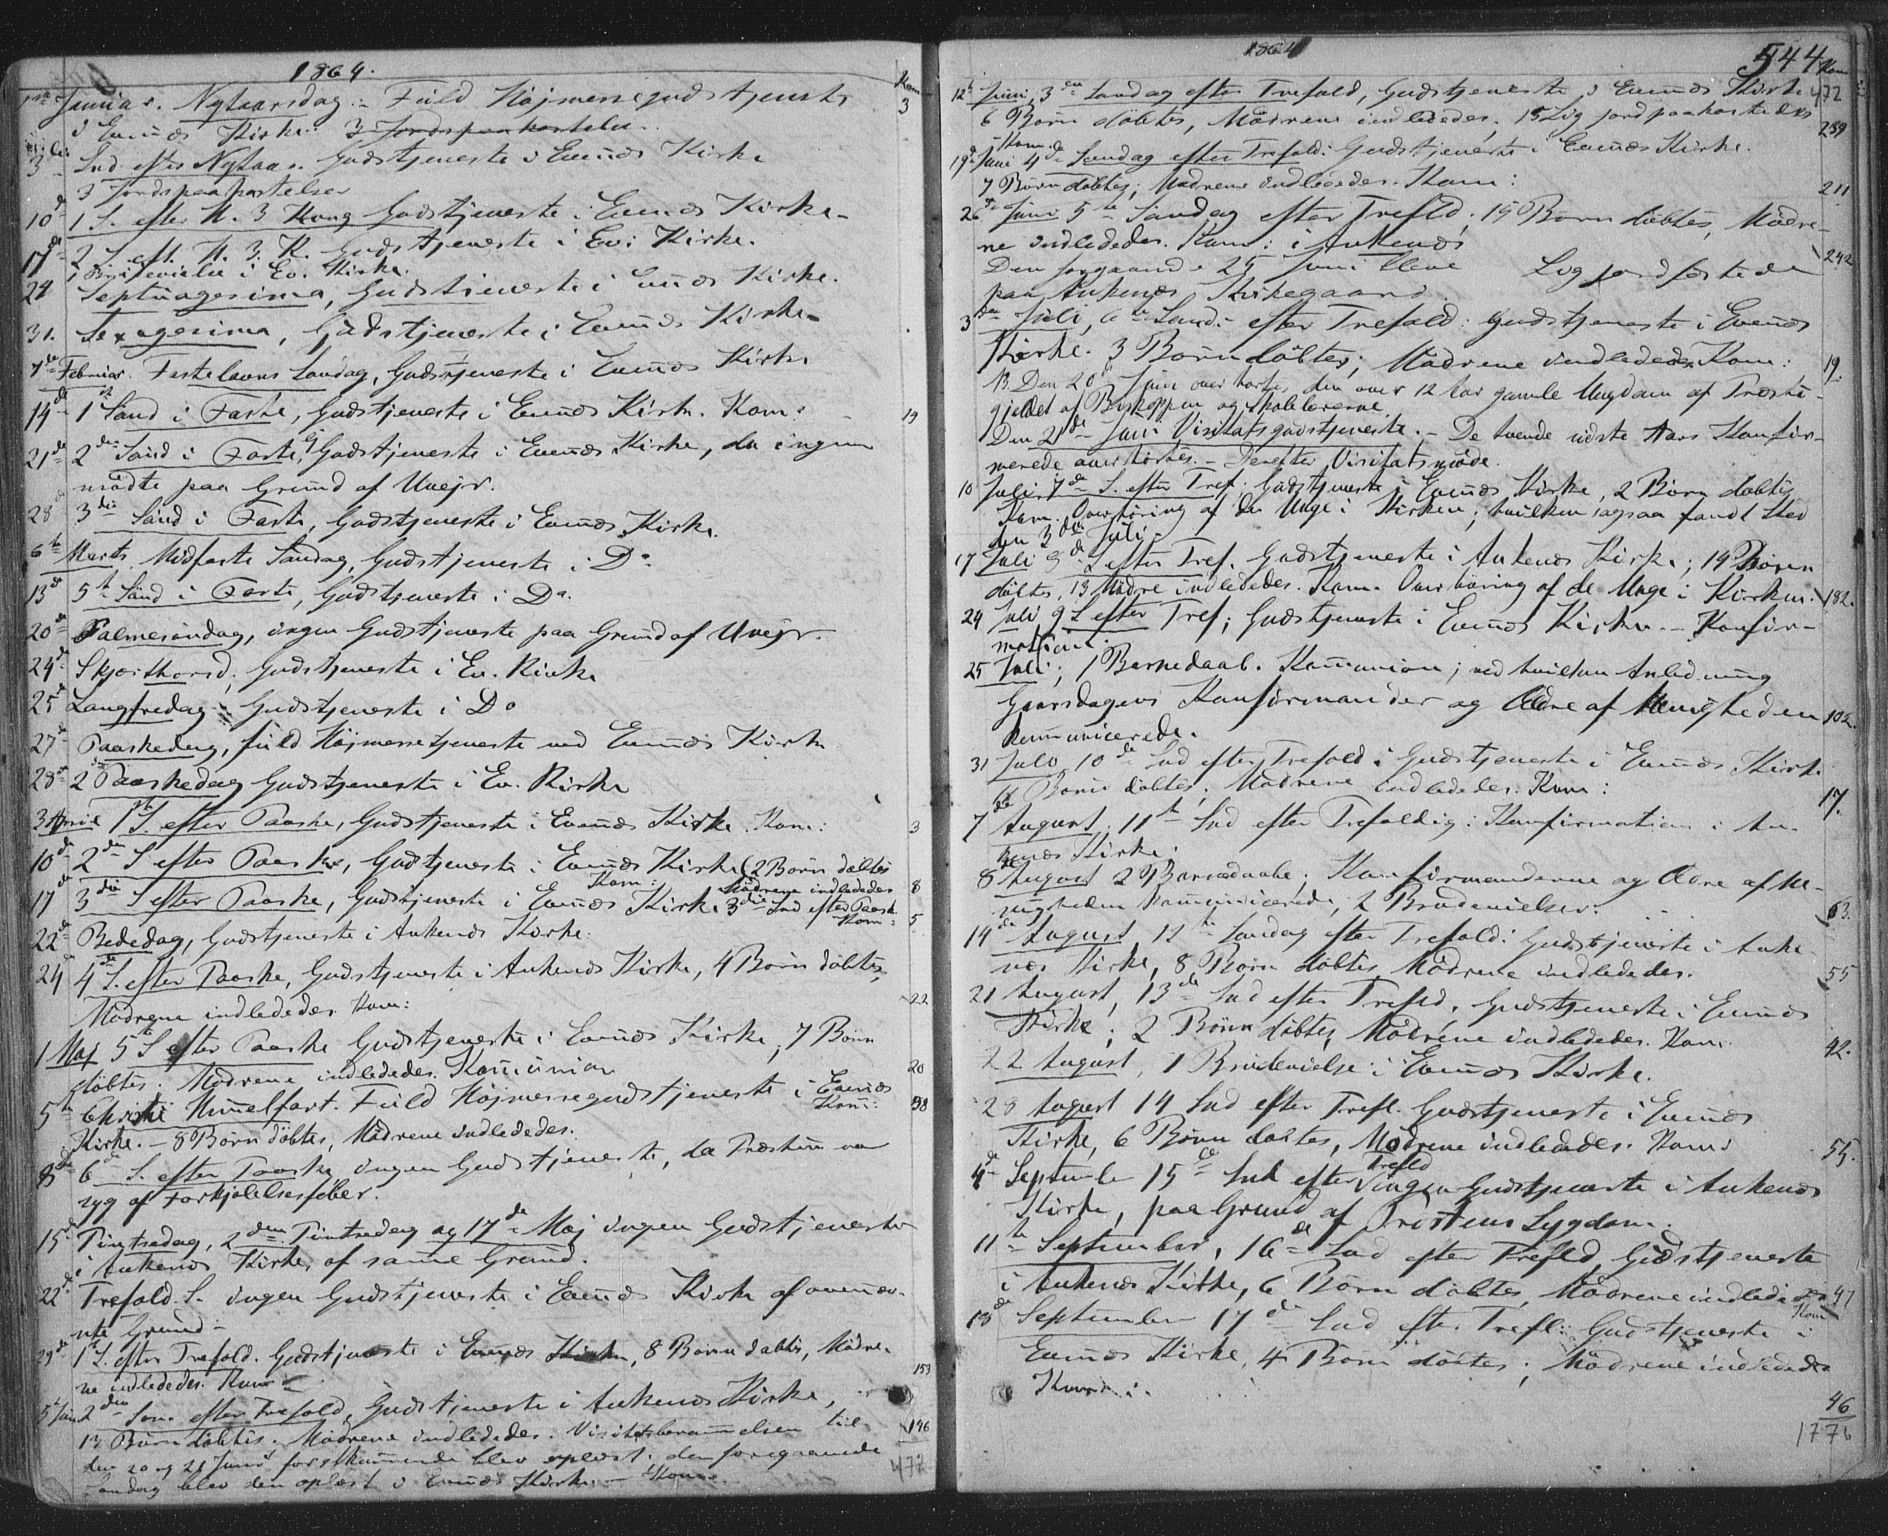 1864.
Kom
1ste Januar. Nytaarsdag: Fuld Højmessegudstjeneste 3
i Evenæs Kirke. 3 Jordspaakastelser
3die Snd. efter Nytaar. Gudstjeneste i Evenæs Kirke
3 Jordspaakastelser
10de 1 S. efter H. 3 Kong Gudstjeneste i Evenæs Kirke
17de 2 S. eft. H. 3. K. Gudstjeneste i Ev: Kirke.
1 Brudevielse i Ev. Kirke.
24 Septuagesima, Gudstjeneste i Evenæs Kirke.
31. Sexagesima, Gudstjeneste i Evenæs Kirke
7de Februar. Fastelavns Søndag, Gudstjeneste i Evenæs Kirke
14de 1st Sønd i Faste, Gudstjeneste i Evenæs Kirke. Kom: 19
21de 2den Sønd i Faste, Gudstjeneste i Evenæs Kirke, da ingen
mødte paa Grund af Uvejr.
28 3die Sønd i Faste, Gudstjeneste i Evenæs Kirke.
6te Marts. Midfaste Søndag, Gudstjeneste i Do
13de 5te Sønd i Faste, Gudstjeneste i Do.
20de Palmesøndag, ingen Gudstjeneste paa Grund af Uvejr.
24de Skjærthorsd. Gudstjeneste i Ev. Kirke
25de Langfredag Gudstjeneste i Do
27de Paaskedag, fuld Højmessetjeneste ved Evenæs Kirke
28de 2 Paaskedag Gudstjeneste i Ev. Kirke
3 April 1st S. efter Paaske, Gudstjeneste i Evenæs Kirke. Kom: 3
10de 2den S efter Paaske, Gudstjeneste i Evenæs Kirke (2 Børn døbtes
Kom: Mødrene indlededes 8
17de 3die S efter Paaske, Gudstjeneste i Evenæs Kirke 3die Snd efter Paask
Kom: 5
22de Bededag, Gudstjeneste i Ankenæs Kirke.
24de 4de S. efter Paaske, Gudstjeneste i Ankenæs Kirke, 4 Børn døbtes,
Mødrene indlededes. Kom: 22
1 Maj 5te S efter Paaske Gudstjeneste i Evenæs Kirke, 7 Børn
døbtes. Mødrene indlededes. Kommunion 20
5te Christi Himmelfart. Fuld Højmessegudstjeneste i Evenæs
Kom: 38
Kirke. – 8 Børn døbtes, Mødrene indlededes.
8de 6de S. efter Paaske ingen Gudstjeneste, da Præsten var
syg af Forkjølelsesfeber.
15de Pintsedag, 2den Pintsedag og 17de Maj ingen Gudstjeneste
i Ankenæs Kirke, af samme Grund.
22de Trefold. S. ingen Gudstjeneste i Evenæs Kirke af ovennæv-
nte Grund –
29de 1 S. efter Trefold. Gudstjeneste i Evenæs Kirke, 8 Børn døbtes, Mødre-
ne indlededes. Kom: 153
5 Juni 2den Søn. efter Trefold, Gudstjeneste i Ankenæs Kirke,
13 Børn døbtes. Mødrene indlededes. Visitatsberammelsen til 196
den 20 og 21 Juni førstkommende blev oplæst; den foregaaende
Søndag blev den oplæst i Evenæs Kirke. – Kom: 472
1864
544
Kom
12te Juni, 3die Søndag efter Trefold, Gudstjeneste i Evenæs Kirke 472
6 Børn døbtes, Mødrene indlededes. 15 Lig jordpaakastedes
Kom 239
19de Juni 4de Søndag efter Trefold: Gudstjeneste i Evenæs Kirke.
7 Børn døbtes; Mødrene indlededes. Kom: 211
26de Juni 5te Søndag efter Trefld; 15 Børn døbtes, Mødre-
ne indlededes. Kom: i Ankenæs 242
Den forgaaende 25 Juni bleve Lig jordfæstede
paa Ankenæs Kirkegaard
3die Juli, 6te Sønd. efter Trefold: Gudstjeneste i Evenæs
Kirke. 3 Børn døbtes; Mødrene indlededes. Kom: 19.
NB. Den 20de Juni overhørte den over 12 Aar gamle Ungdom af Præste-
gjeldet af Biskoppen og Skolelærerne.
Den 21de Juni Visitatsgudstjeneste. – De tvende sidste Aars Konfir-
merede overhørtes. – Derefter Visitatsmøde.
10 Juli 7de S. efter Tref. Gudstjeneste i Evenæs Kirke, 2 Børn døbtes
Kom. Overhøring af de Unge i Kirken; hvilken ogsaa fandt Sted
den 3die Juli.
17 Juli 8de S efter Tref. Gudstjeneste i Ankenæs Kirke; 14 Børn
døbtes, 13 Mødre indlededes. Kom. Overhøring af de Unge i Kirken. 182.
24 Juli, 9 S efter Tref; Gudstjeneste i Evenæs Kirke. – Konfir-
mation.
25 Juli; 1 Barnedaab. Kommunion; ved hvilken Anledning
Gaarsdagens Konfirmander og Ældre af Menigheden 102
kommunicerede.
31 Juli 10de Snd efter Trefold i Gudstjeneste i Evenæs Kirke
6 Børn døbtes; Mødrene indlededes. Kom: 17.
7de August, 11te Snd efter Trefoldig: Konfirmation i An-
kenæs Kirke.
8de August 2 Barnedaabe; Konfirmanderne og Ældre af Me-
nigheden kommunicerede, 2 Brudevielser. 63.
14de August 12te Søndag efter Trefold: Gudstjeneste i Anke-
næs Kirke, 8 Børn døbtes, Mødrene indlededes. 55
21 August, 13de Snd efter Trefld, Gudstjeneste i Evenæs
Kirke; 2 Børn døbtes, Mødrene indlededes. Kom: 42.
22 August, 1 Brudevielse i Evenæs Kirke.
28 August 14 Snd efter Trefl. Gudstjeneste i Evenæs
Kirke, 6 Børn døbtes, Mødrene indlededes. Kom: 55.
4de September 15de Snd efter Trefld ingen Gudstjeneste i Ankenæs
Kirke, paa Grund af Præstens Sygdom.
11te September, 16de Snd efter Trefld, Gudstjeneste
i Ankenæs Kirke, 6 Børn døbtes, Mødrene indlededes 47
Kom
18de September 17de Snd efter Trefl: Gudstjeneste i
Evenæs Kirke, 4 Børn døbtes; Mødrene indlededes
Kom: 46
1776